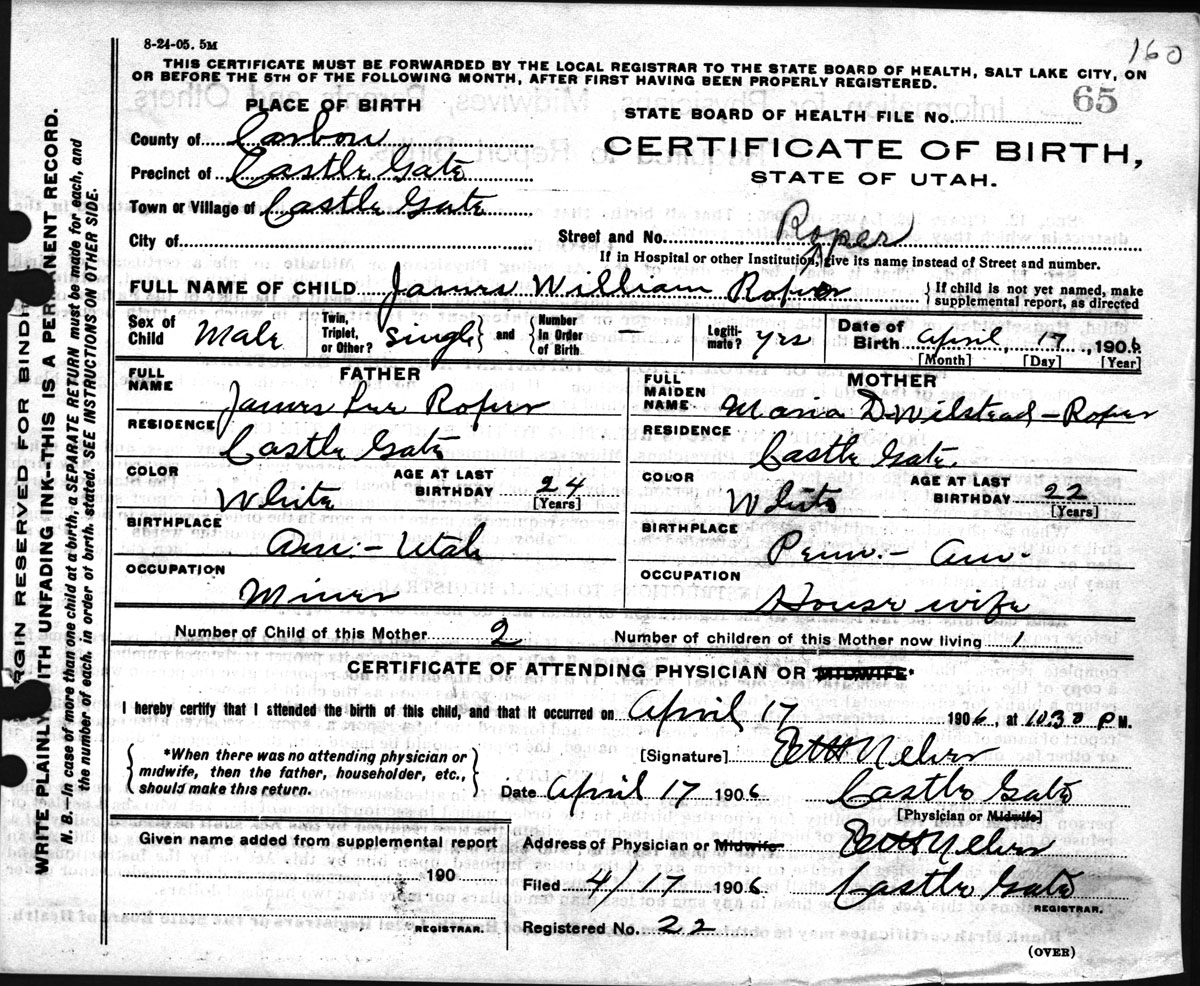 8-24-05. 5M
160
THIS CERTIFICATE MUST BE FORWARDED BY THE LOCAL REGISTRAR TO THE STATE BOARD OF HEALTH, SALT LAKE CITY, ON
OR BEFORE THE 5TH OF THE FOLLOWING MONTH, AFTER FIRST HAVING BEEN PROPERLY REGISTERED.
PLACE OF BIRTH
65
STATE BOARD OF HEALTH FILE No.
County of Carbon
CERTIFICATE OF BIRTH,
Precinct of Castle Gate
STATE OF UTAH.
Town or Village of Castle Gate
City of
Street and No. Roper
If in Hospital or other Institution, give its name instead of Street and number.
FULL NAME OF CHILD James William Roper
If child is not yet named, make
supplemental report, as directed
Sex of Child Male
Twin, Triplet, or Other? Single and Number in Order of Birth –
Legitimate? yes
Date of Birth April 17, 1906
[Month] [Day] [Year]
FATHER
FULL NAME James Lee Roper
RESIDENCE Castle Gate
COLOR White
AGE AT LAST BIRTHDAY 24 [Years]
BIRTHPLACE Am.- Utah
OCCUPATION Miner
MOTHER
FULL MAIDEN NAME Maria D. Milstead-Roper
RESIDENCE Castle Gate
COLOR White
AGE AT LAST BIRTHDAY 22 [Years]
BIRTHPLACE Penn.- Am.
OCCUPATION House wife
Number of Child of this Mother 2
Number of children of this Mother now living 1
CERTIFICATE OF ATTENDING PHYSICIAN OR MIDWIFE*
I hereby certify that I attended the birth of this child, and that it occurred on April 17 1906, at 10 30 P M.
*When there was no attending physician or
midwife, then the father, householder, etc.,
should make this return.
[Signature]
Date April 17 1906 Castle Gate
[Physician or Midwife]
Given name added from supplemental report
190
REGISTRAR.
Address of Physician or Midwife
Filed 4/17 1906 Castle Gate
REGISTRAR.
Registered No. 22
(OVER)
RGIN RESERVED FOR BINDI
WRITE PLAINLY, WITH UNFADING INK--THIS IS A PERMANENT RECORD.
N. B.—In case of more than one child at a birth, a SEPARATE RETURN must be made for each, and
the number of each, in order of birth, stated. SEE INSTRUCTIONS ON OTHER SIDE.